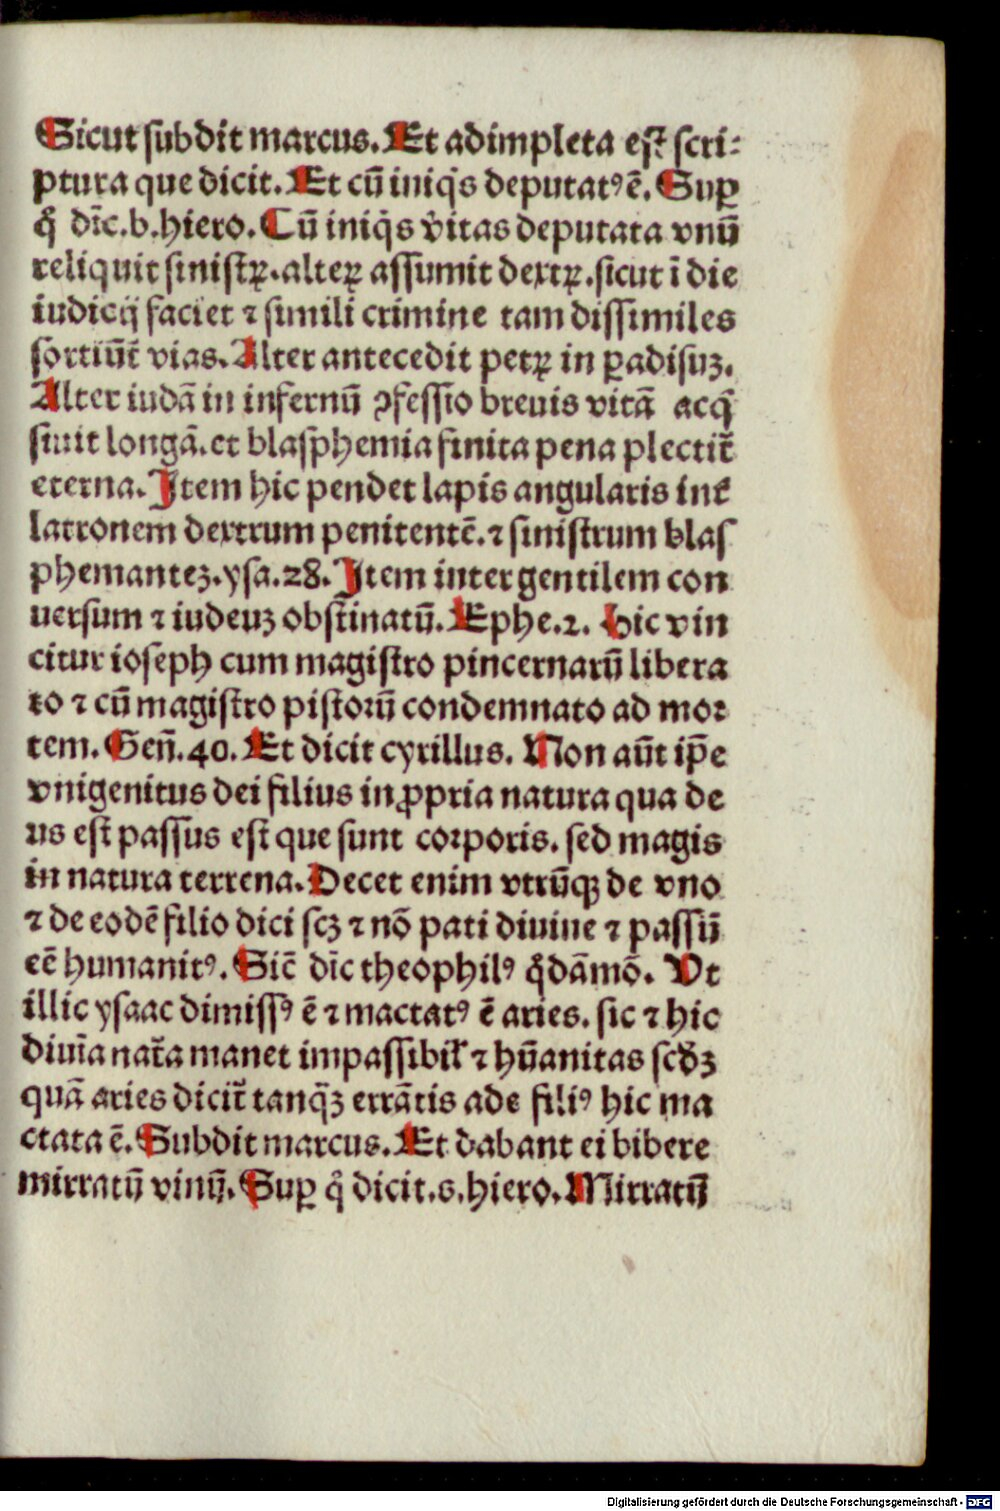 Sicut subdit marcus. Et adimpleta est scri-
ptura que dicit. Et cū iniq̄s deputatꝰ ē. Suꝑ
q̊ dīc. b. hiero. Cū iniq̄s v̊itas deputata vnū
reliquit sinistrꝝ. alterꝝ assumit dextrꝝ. sicut ī die
iudicij faciet ⁊ simili crimine tam dissimiles
sortiūt̄ vias. Alter antecedit petrꝝ in ꝑadisuꝫ.
Alter iudā in infernū ꝯfessio breuis vitā acq̄
siuit longā. et blasphemia finita pena plectit̄
eterna. Item hic pendet lapis angularis int̄
latronem dextrum penitentē. ⁊ sinistrum blas
phemanteꝫ. ysa. 28. Item inter gentilem con
uersum ⁊ iudeuꝫ obstinatū. Ephe. 2. Hic vin
citur ioseph cum magistro pincernarū libera
to ⁊ cū magistro pistorū condemnato ad mor
tem. Geñ. 40. Et dicit cyrillus. Non aūt ip̄e
vnigenitus dei filius in ꝓpria natura qua de
us est passus est que sunt corporis. sed magis
in natura terrena. Decet enim vtrūqꝫ de vno
⁊ de eodē filio dici scꝫ ⁊ nō pati diuine ⁊ passū
eē humanitꝰ. Sic̄ dīc theophilꝰ q̊dāmō. Vt
illic ysaac dimissꝰ ē ⁊ mactatꝰ ē aries. sic ⁊ hic
diuīa nat̄a manet impassibil̄ ⁊ hūanitas scd̄ꝫ
quā aries dicit̄ tanq̄ꝫ errātis ade filiꝰ hic ma
ctata ē. Subdit marcus. Et dabant ei bibere
mirratū vinū. Suꝑ q̊ dicit. s. hiero. Mirratū
Digitalisierung gefördert durch die Deutsche Forschungsgemeinschaft - DFG